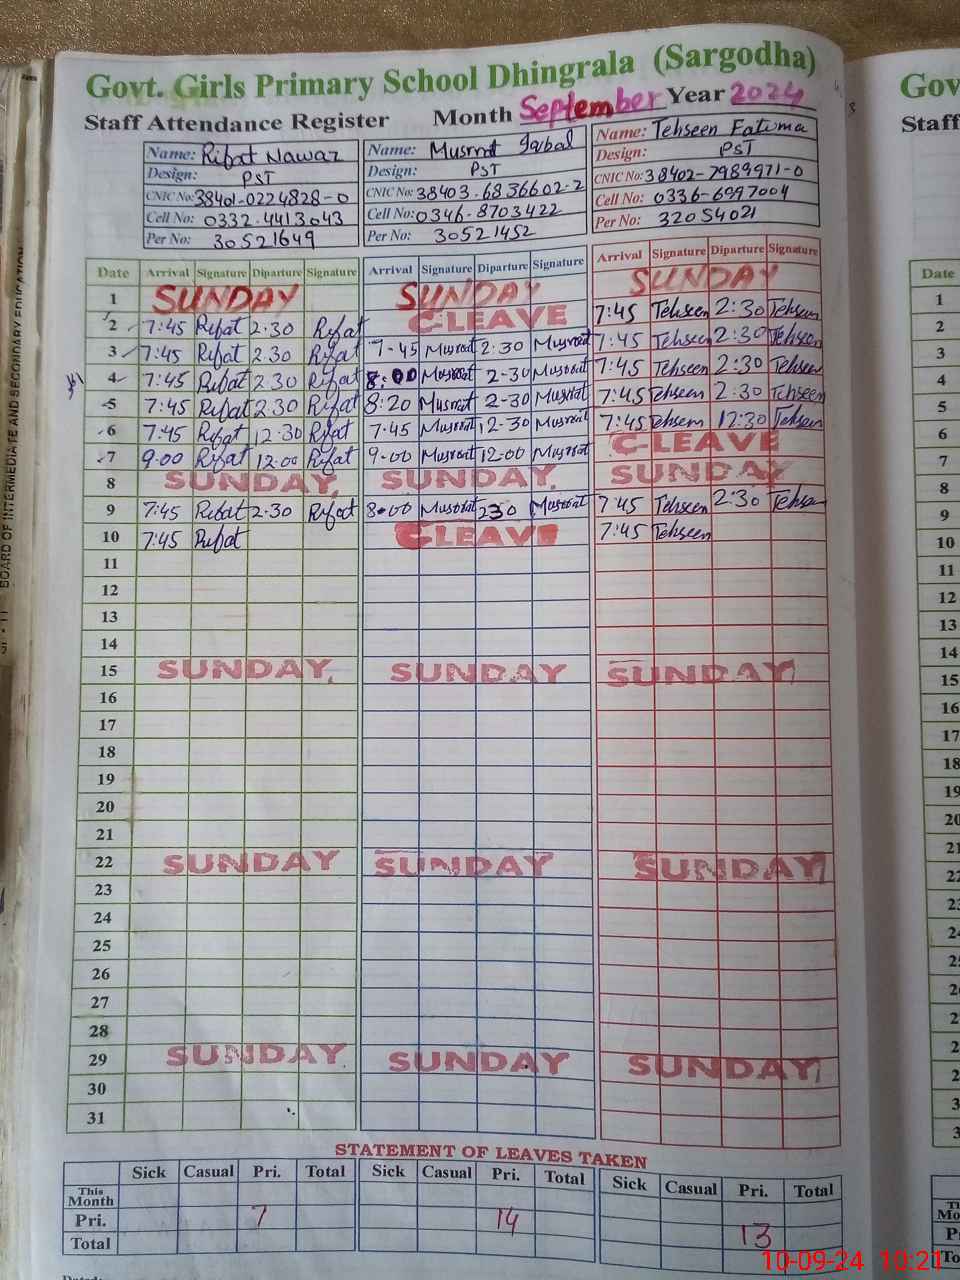 Govt. Girls Primary School Dhingrala (Sargodha)
Staff Attendance Register Month September Year 2024
Name: Rifat Nawaz
Design: PST
CNIC No: 38401-0224828-0
Cell No: 0332-4413043
Per No: 30521649
Name: Musrrat Iqbal
Design: PST
CNIC No: 38403-6836602-2
Cell No: 0346-8703422
Per No: 30521452
Name: Tehseen Fatima
Design: PST
CNIC No: 38402-7989971-0
Cell No: 0336-6997004
Per No: 32054021
Date Arrival Signature Diparture Signature Arrival Signature Diparture Signature Arrival Signature Diparture Signature
1 SUNDAY SUNDAY SUNDAY
2 7:45 Rifat 2:30 Rifat C-LEAVE 7:45 Tehseen 2:30 Tehseen
3 7:45 Rifat 2:30 Rifat 7-45 Musrrat 2:30 Musrrat 7:45 Tehseen 2:30 Tehseen
4 7:45 Rifat 2:30 Rifat 8:00 Musrrat 2-30 Musrrat 7:45 Tehseen 2:30 Tehseen
5 7:45 Rifat 2:30 Rifat 8:20 Musrrat 2-30 Musrrat 7:45 Tehseen 2:30 Tehseen
6 7:45 Rifat 12:30 Rifat 7-45 Musrrat 12-30 Musrrat 7:45 Tehseen 12:30 Tehseen
7 9:00 Rifat 12:00 Rifat 9-00 Musrrat 12:00 Musrrat C-LEAVE
8 SUNDAY SUNDAY SUNDAY
9 7:45 Rifat 2:30 Rifat 8-00 Musrrat 230 Musrrat 7:45 Tehseen 2:30 Tehseen
10 7:45 Rifat C-LEAVE 7:45 Tehseen
11
12
13
14
15 SUNDAY SUNDAY SUNDAY
16
17
18
19
20
21
22 SUNDAY SUNDAY SUNDAY
23
24
25
26
27
28
29 SUNDAY SUNDAY SUNDAY
30
31
STATEMENT OF LEAVES TAKEN
Sick Casual Pri. Total Sick Casual Pri. Total Sick Casual Pri. Total
This Month
Pri. 7 14 13
Total
BOARD OF INTERMEDIATE AND SECONDARY EDUCATION
Gov
Staff
Date
1
2
3
4
5
6
7
8
9
10
11
12
13
14
15
16
17
18
19
20
10-09-24 10:21